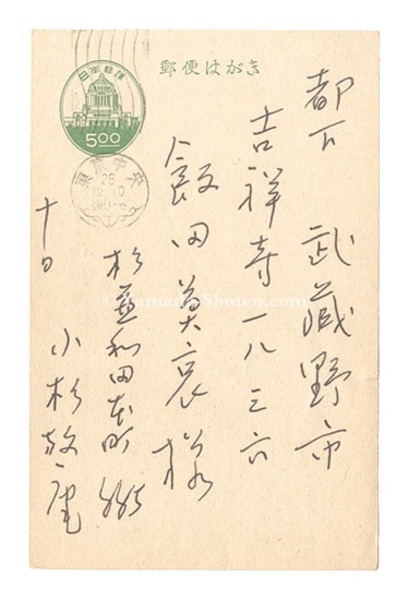 郵便はがき
日本郵便
5.00
東京中央
26
12.10
都下 武蔵野市
吉祥寺一八三六
飯田莫哀様
杉並和田本町
十日 小杉放庵
© Yamada-Shoten.com